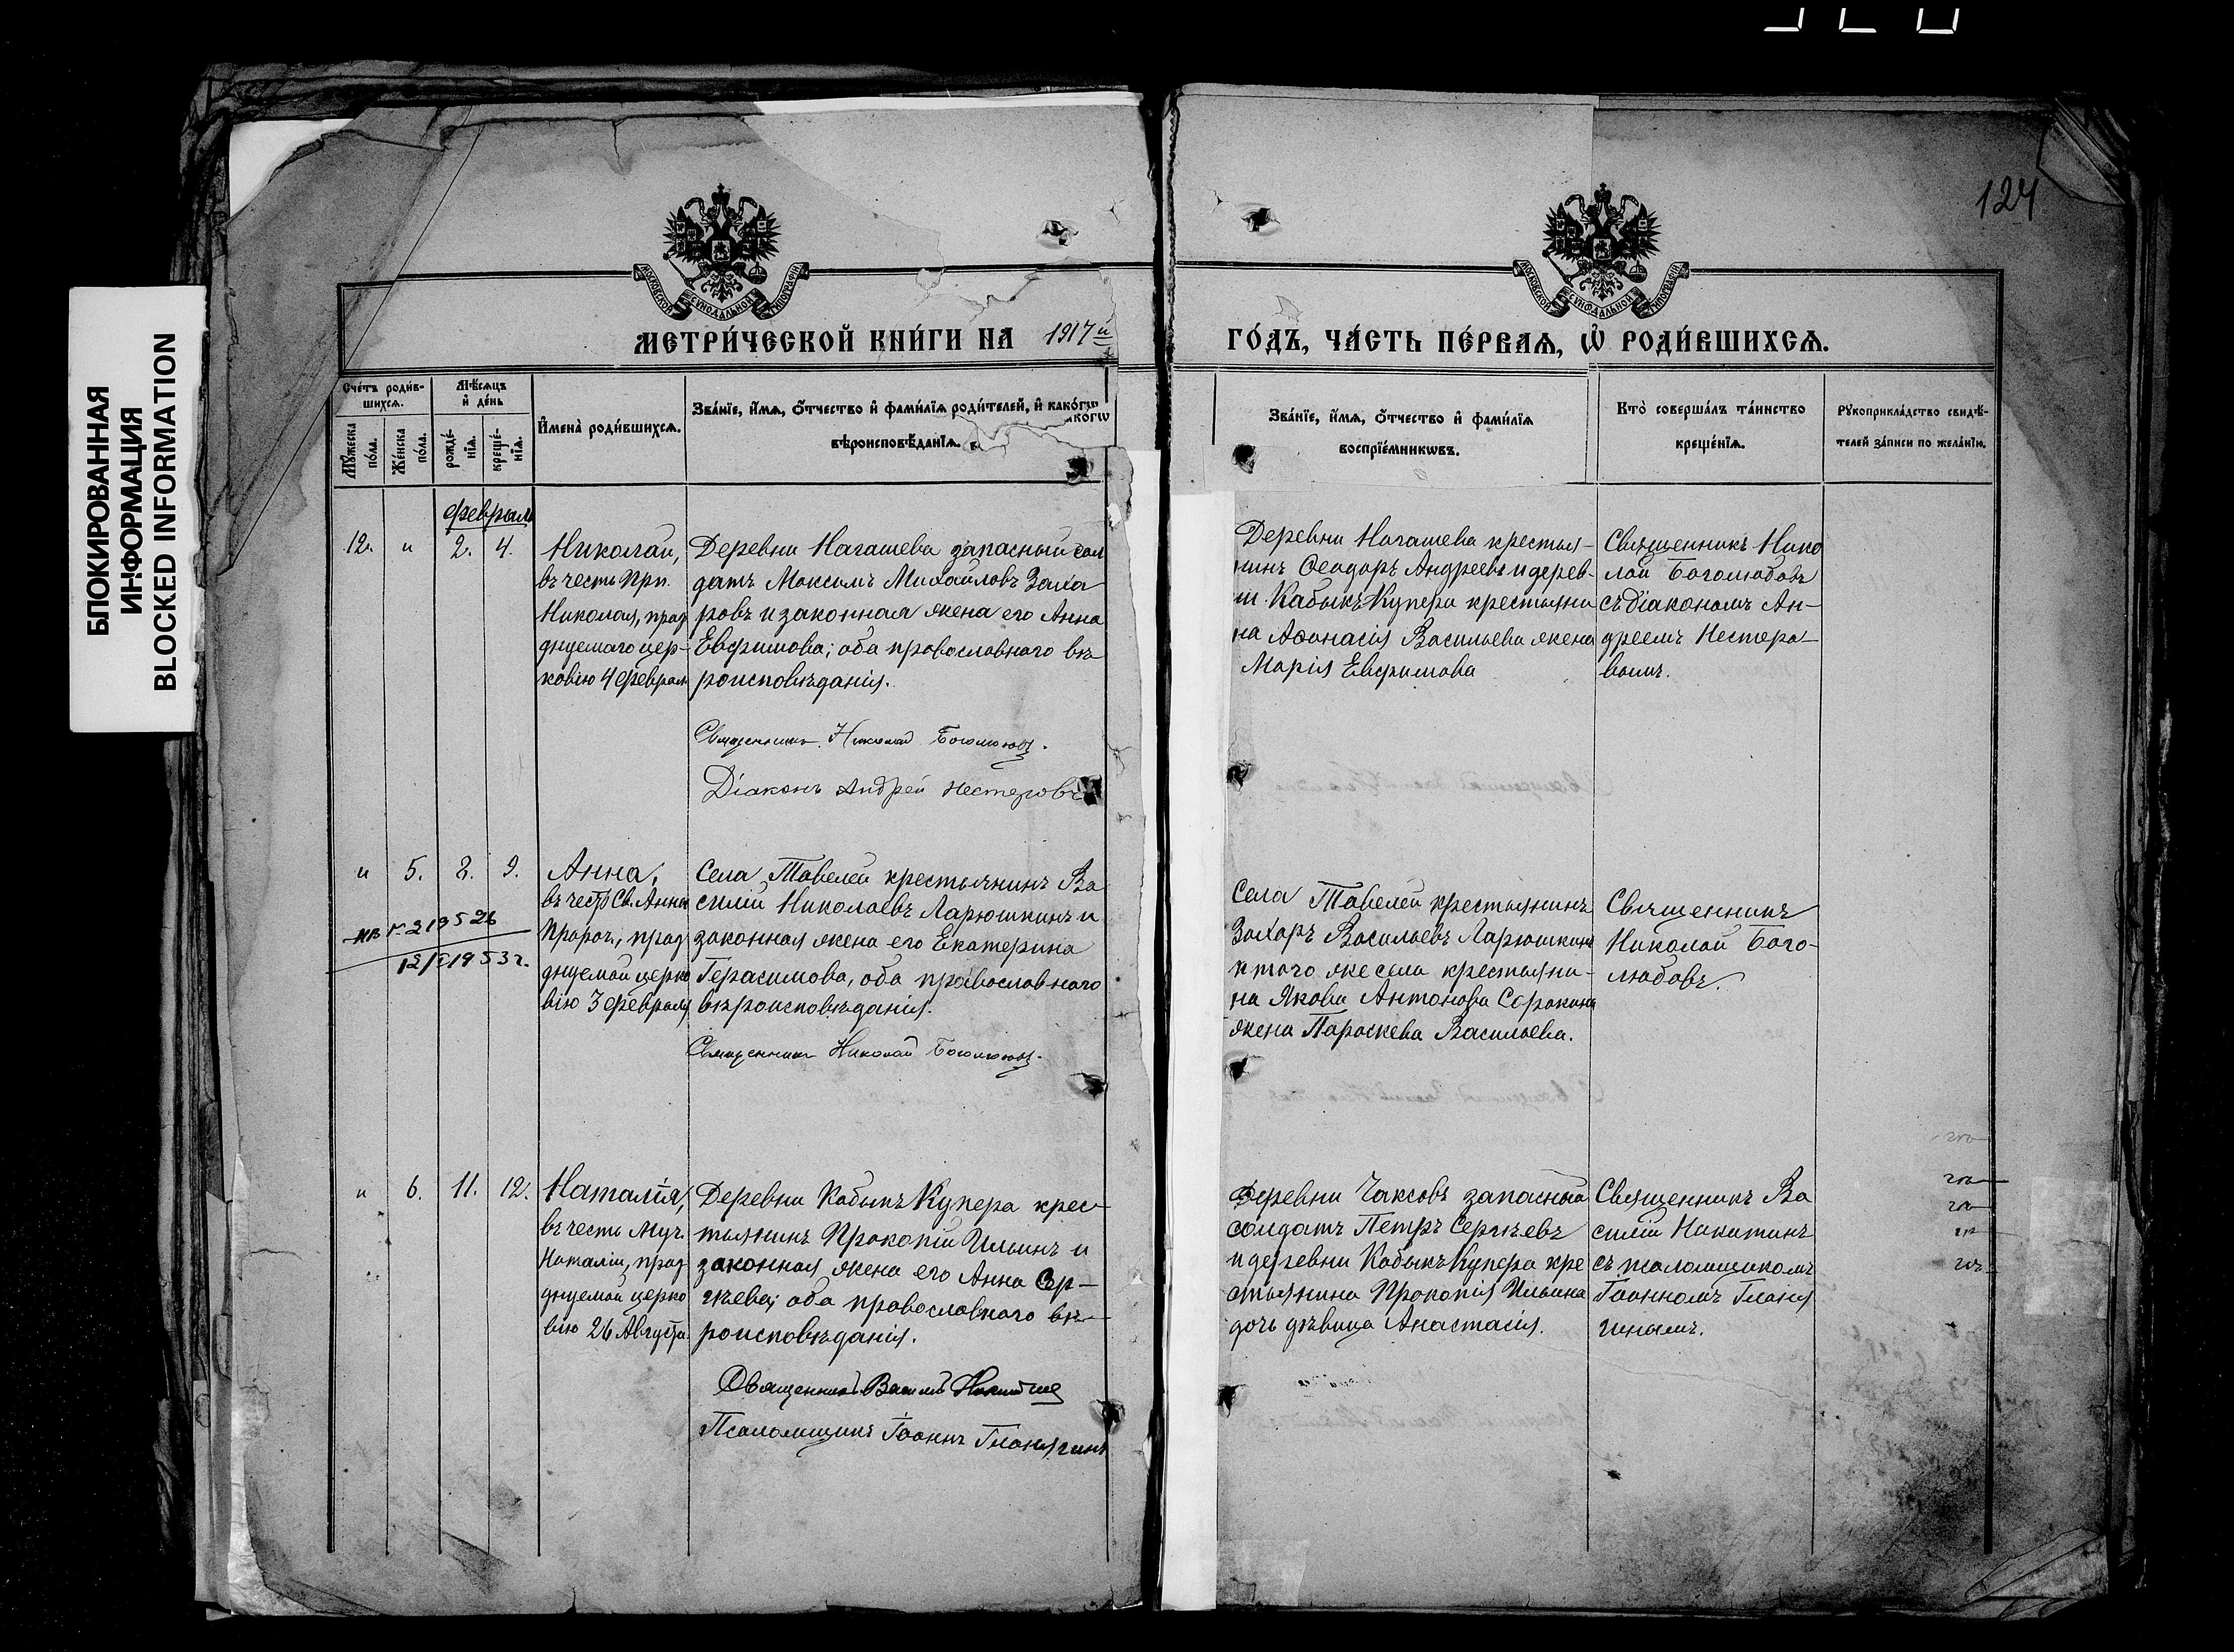 БЛОКИРОВАННАЯ
ИНФОРМАЦИЯ
BLOCKED INFORMATION
124
МОСКОВСКОЙ СѴНОДАЛЬНОЙ ТИПОГРАФІИ
МОСКОВСКОЙ СѴНОДАЛЬНОЙ ТИПОГРАФІИ
МЕТРИ́ЧЕСКОЙ КНИ́ГИ НА 1917й
ГО́ДЪ, ЧА́СТЬ ПЕ́РВАѦ, Ѡ РОДИ́ВШИХСѦ.
Сче́тъ роди́в-
шихсѧ.
Мꙋ́жеска
по́ла.
Же́нска
по́ла.
Мѣ́сѧцъ
и де́нь
рожде́-
нїѧ.
креще́-
нїѧ.
Имена̀ роди́вшихсѧ.
Зва́нїе, и́мѧ, ѻ́тчество и фами́лїѧ роди́телей, и како́гѡ
вѣроисповѣ́данїѧ.
Зва́нїе, и́мѧ, ѻ́тчество и фами́лїѧ
воспрїе́мникѡвъ.
Кто̀ соверша́лъ та́инство
креще́нїѧ.
Рꙋкоприкла́дство свидѣ́-
телей за́писи по жела́нїю.
февраль
12. „ 2. 4.
Николай,
въ честь Прп.
Николая, празд
днуемаго цер-
ковію 4 февраля
Деревни Нагашева запасный сол
датъ Максимъ Михайловъ Заха
ровъ и законная жена его Анна
Евфимова; оба православнаго вѣ
роисповѣданія.
Священникъ Николай Боголюбовъ.
Діаконъ Андрей Нестеровъ
Деревни Нагашева крестья-
нинъ Ѳеодоръ Андреевъ и дерев-
ни Кабыкъ Купера крестьяни
на Аѳанасія Васильева жена
Марія Евфимова
Священникъ Нико
лай Боголюбовъ
съ діакономъ Ан-
дреемъ Нестеро-
вымъ.
„ 5. 2. 9.
219526
12/I 1953 г.
Анна,
въ честь Св. Анны
Пророч., празд
днуемой церко
вію 3 февраля
Села Тавелей крестьянинъ Ва
силій Николаевъ Ларюшкинъ и
законная жена его Екатерина
Герасимова, оба православнаго
вѣроисповѣданія.
Священникъ Николай Боголюбовъ.
Села Тавелей крестьянинъ
Захаръ Васильевъ Ларюшкинъ
и того же села крестьяни-
на Якова Антонова Сорокина
жена Параскева Васильева.
Священникъ
Николай Бого-
любовъ.
„ 6. 11. 12.
Наталія,
въ честь Муч.
Наталіи, празд
днуемой церко
вію 26 Августа.
Деревни Кабыкъ Купера крес-
тьянинъ Прокопій Ильинъ и
законная жена его Анна Сер-
гѣева; оба православнаго вѣ-
роисповѣданія.
Священникъ Василій Никитинъ
Псаломщикъ Іоаннъ Гланягинъ
Деревни Чаксовъ запасный
солдатъ Петръ Сергѣевъ
и деревни Кабыкъ Купера кре
стьянина Прокопія Ильина
дочь дѣвица Анастасія.
Священникъ Ва
силій Никитинъ
съ псаломщикомъ
Іоанномъ Гланя
гинымъ.